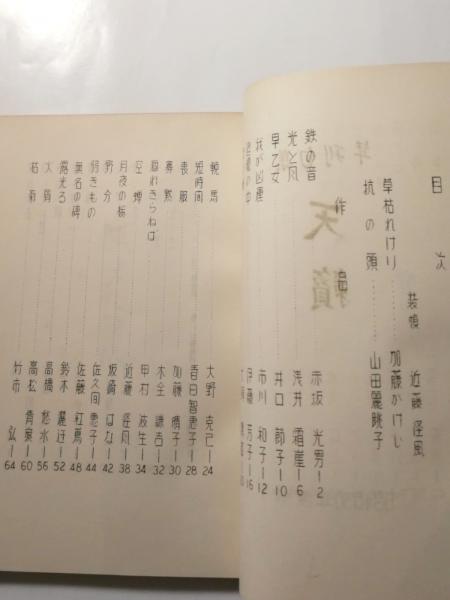 目次
装幀 近藤径風
草枯れけり………加藤かけい
杭の頭………山田麗眺子
作品
鉄の音 赤坂光男―2
光と風 浅井霜崖―6
早乙女 井口節子―10
我が凶運 市川和子―12
伊藤芳子―16
驍馬 大野克己―24
短時間 春日智恵子―28
喪服 加藤晴子―30
寡黙 木全謙吉―32
隠れきらねば 甲村波生―34
空蝉 近藤径風―38
月夜の栃 坂崎はな―42
野分 佐久間恵子―44
弱きもの 佐藤紅萬―48
無名の碑 鈴木麗迂―52
露光る 高橋悠水―56
火箭 高松青泉―60
枯菊 竹市弘―64
年刊
天籟